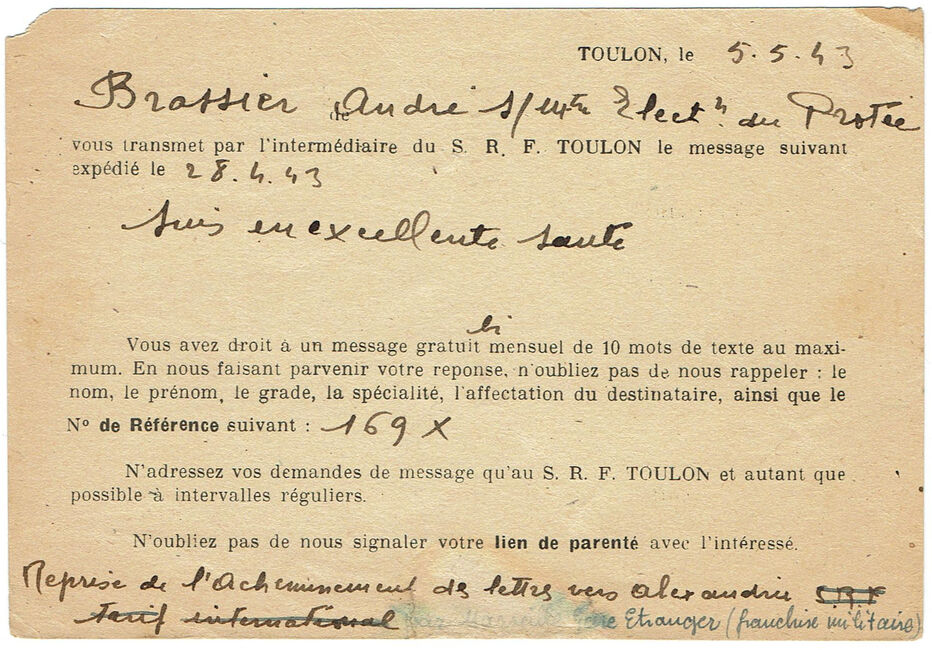 TOULON, le 5.5.43
Brassier André s/mtre Electn du Protée
vous transmet par l'intermédiaire du S. R. F. TOULON le message suivant
expédié le 28.4.43
Suis en excellente santé
bi
Vous avez droit à un message gratuit mensuel de 10 mots de texte au maxi-
mum. En nous faisant parvenir votre reponse, n'oubliez pas de nous rappeler : le
nom, le prénom, le grade, la spécialité, l'affectation du destinataire, ainsi que le
Nº de Référence suivant : 169 X
N'adressez vos demandes de message qu'au S. R. F. TOULON et autant que
possible à intervalles réguliers.
N'oubliez pas de nous signaler votre lien de parenté avec l'intéressé.
Reprise de l'Acheminement des lettres vers Alexandrie
tarif international par Marseille Gare Etranger (franchise militaire)